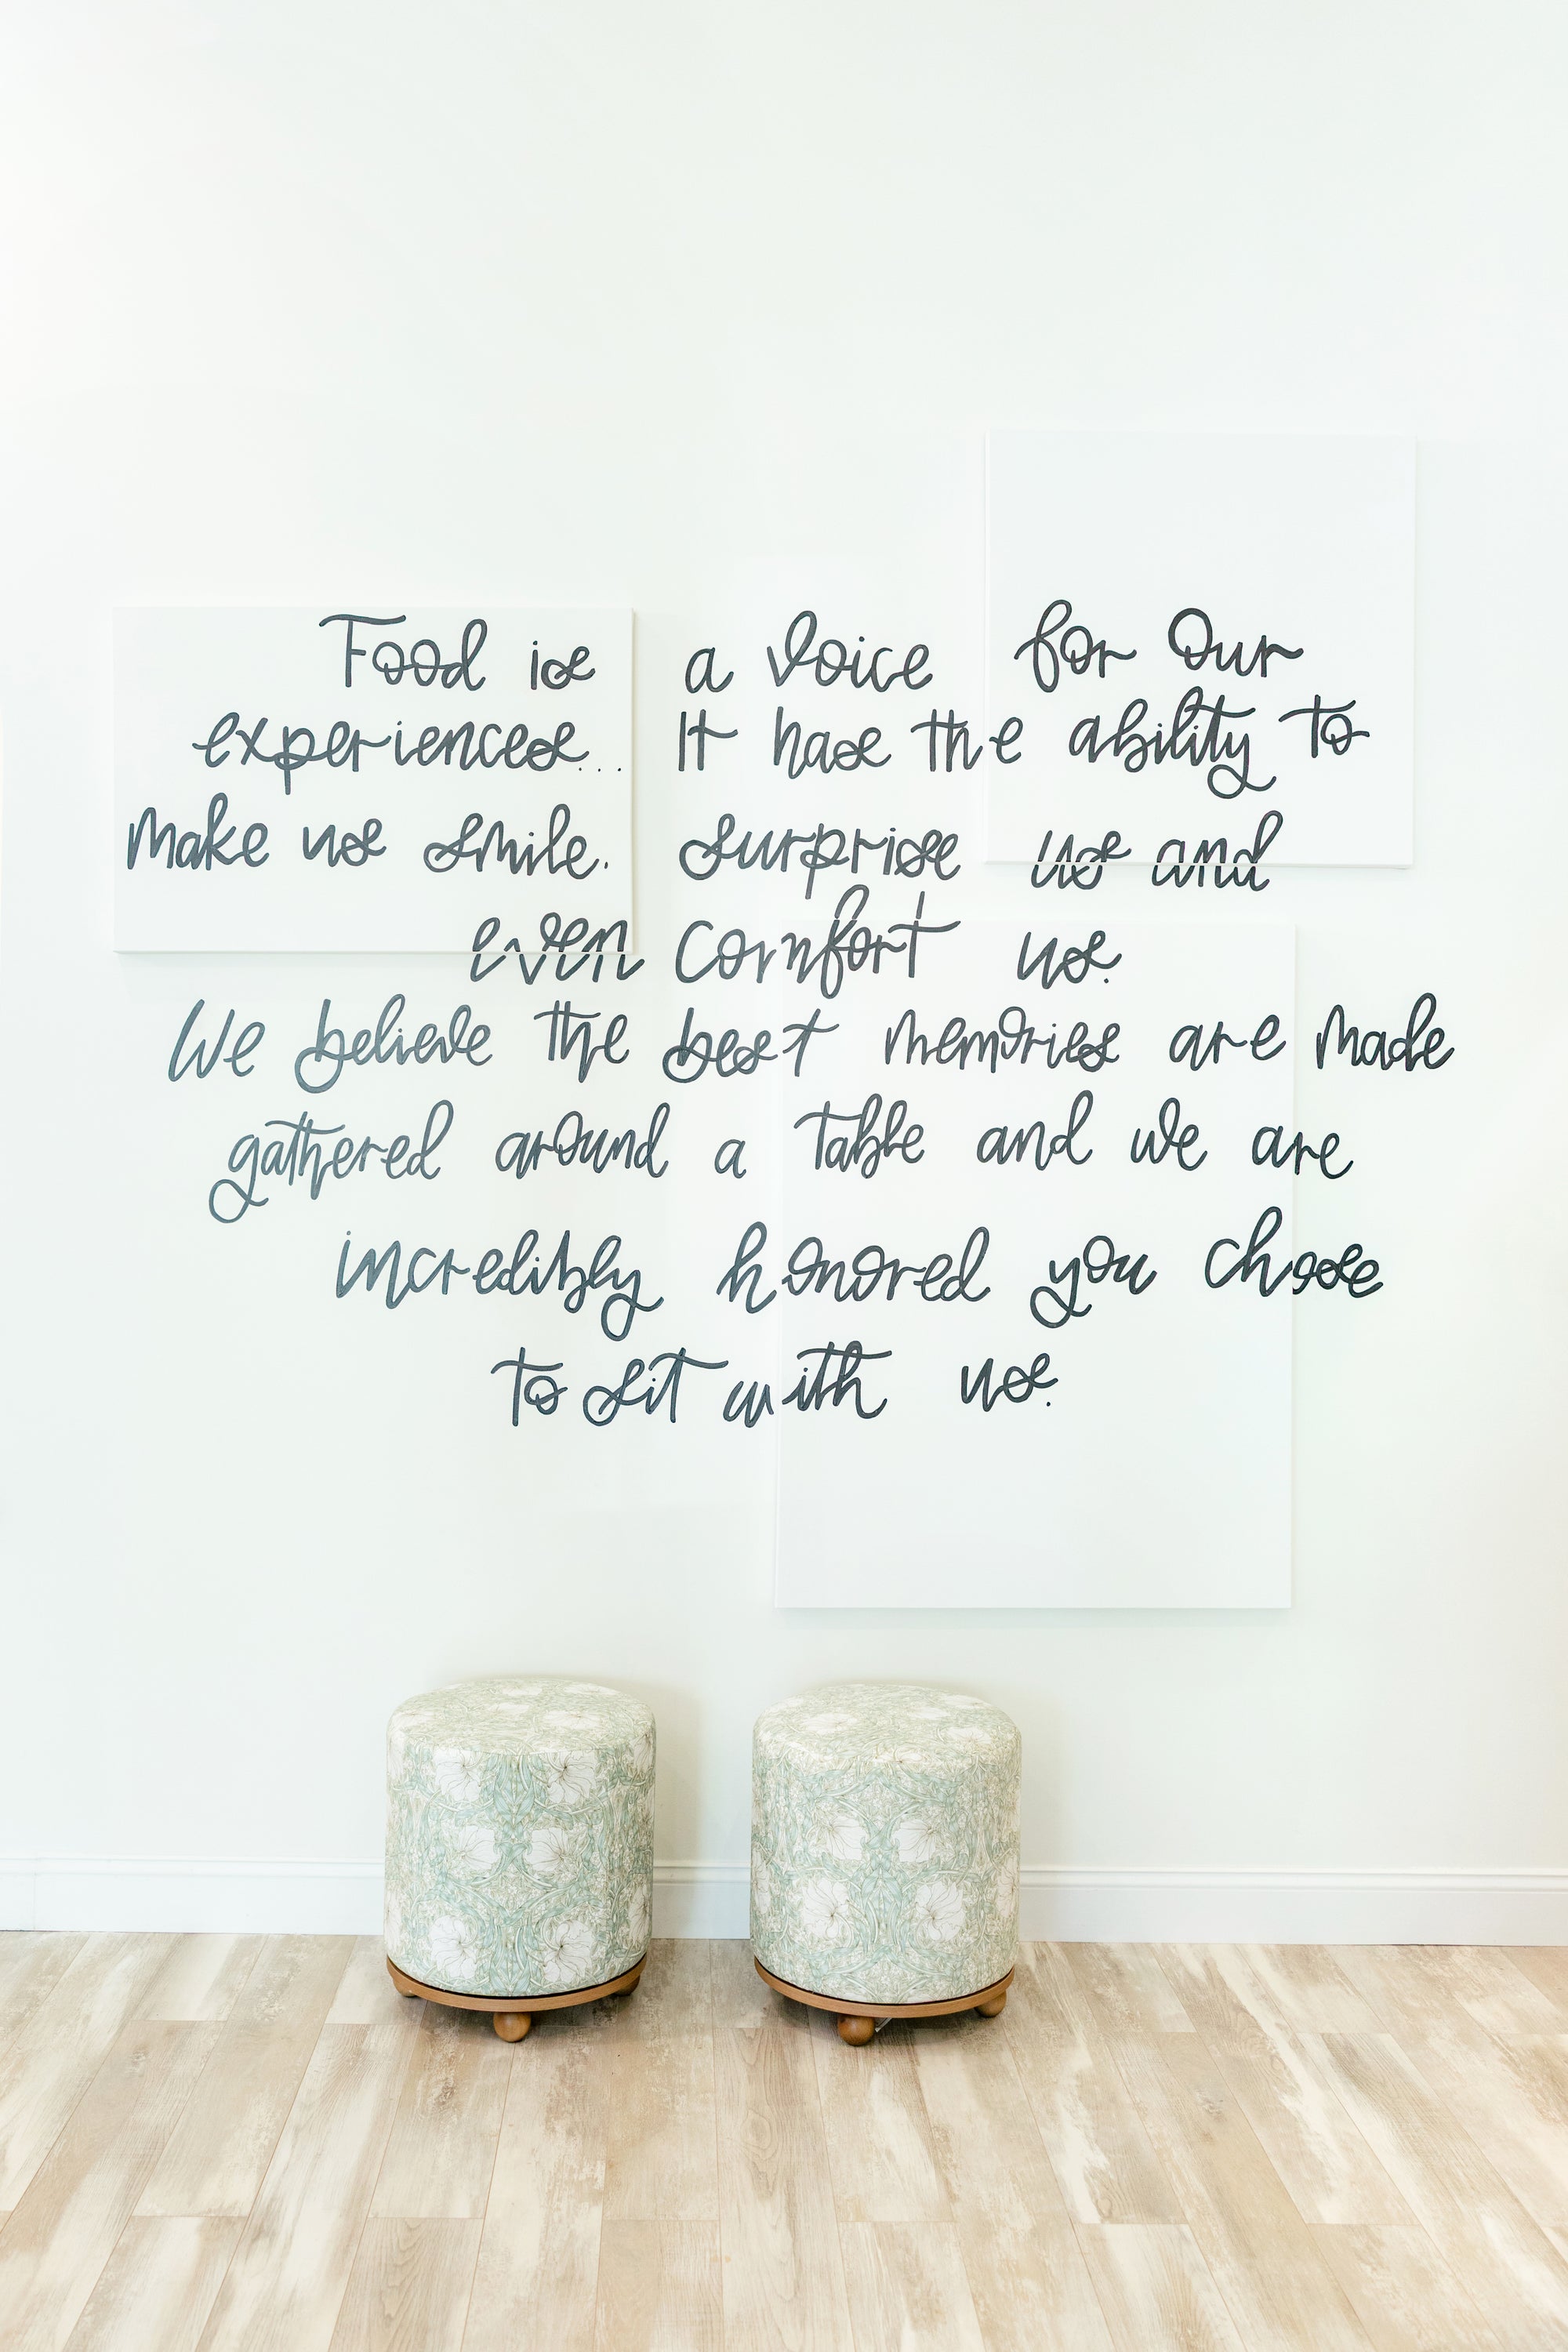 Food is a voice for our
experiences... It has the ability to
make us smile. surprise us and
even comfort us.
We believe the best memories are made
gathered around a table and we are
incredibly honored you chose
to sit with us.